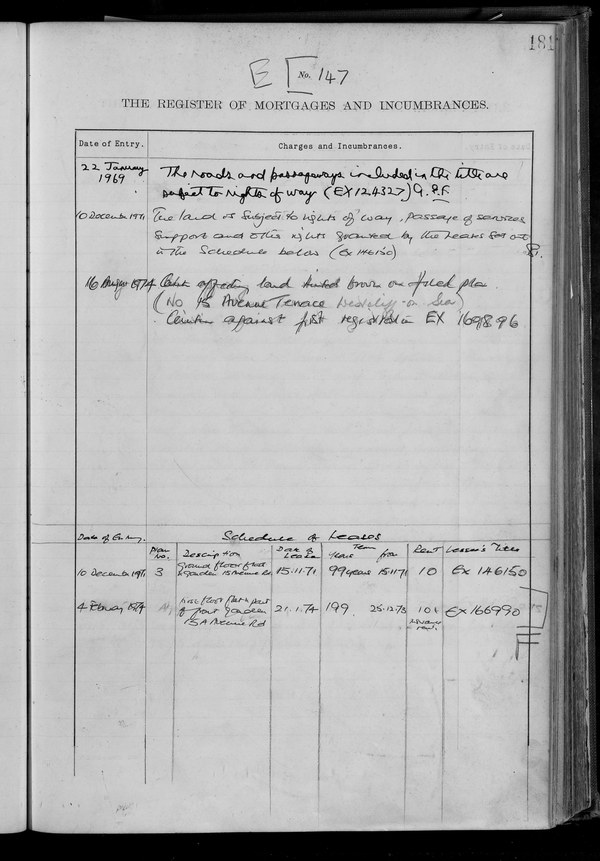 181
E No. 147
THE REGISTER OF MORTGAGES AND INCUMBRANCES.
Date of Entry. Charges and Incumbrances.
22 January The roads and passageways included in the title are
1969 subject to rights of way (EX124327)
10 December 1971 The land is subject to rights of way, passage of services
support and other rights granted by the leases set out
in the Schedule below (Ex 146150)
16 August 1974 Caution affecting land tinted brown on filed plan
(No 15 Avenue Terrace Westcliff-on Sea)
Caution against first registration EX 169896
Date of Entry. Schedule of Leases
Plan No. Description Date of Lease Term Years from Rent Lessee's Title
10 December 1971 3 Ground floor flat & garden 15 15.11.71 99 years 15.11.71 10 Ex 146150
4 February 1974 first floor flat & part 21.1.74 199 25.12.73 10 Ex 166990
of front garden
15A Rd